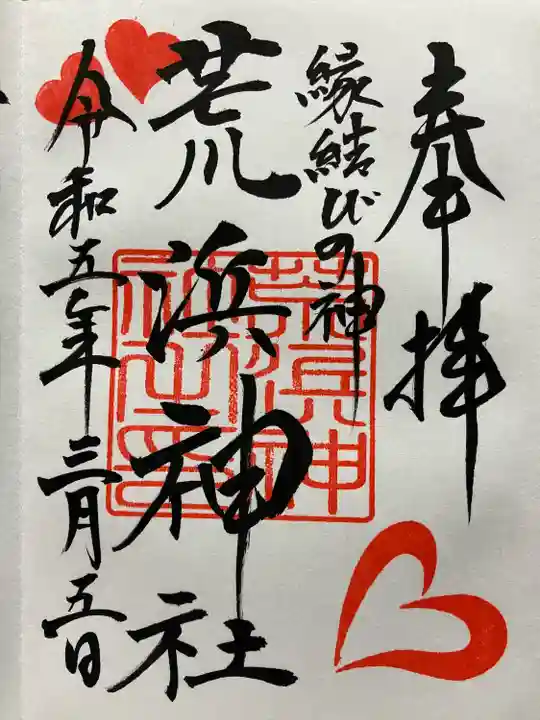 奉拝
縁結びの神
荒浜神社
荒浜神社之印
令和五年三月五日